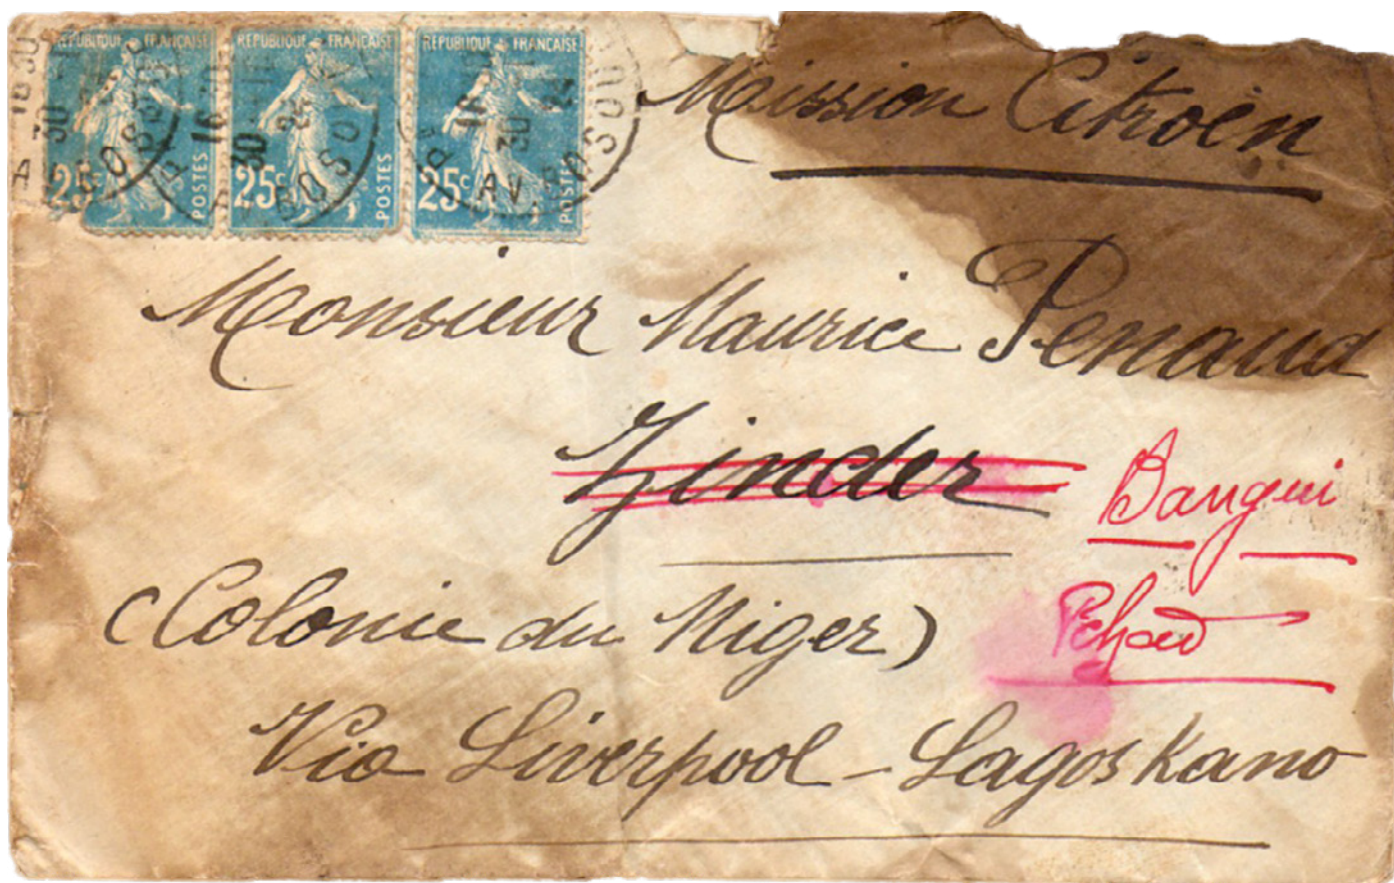 REPUBLIQUE FRANÇAISE REPUBLIQUE FRANÇAISE REPUBLIQUE FRANÇAISE
25c POSTES 25c POSTES 25c POSTES
Mission Citroën
Monsieur Maurice Penaud
Zinder Bangui
(Colonie du Niger) Tchad
Via Liverpool - Lagos Kano